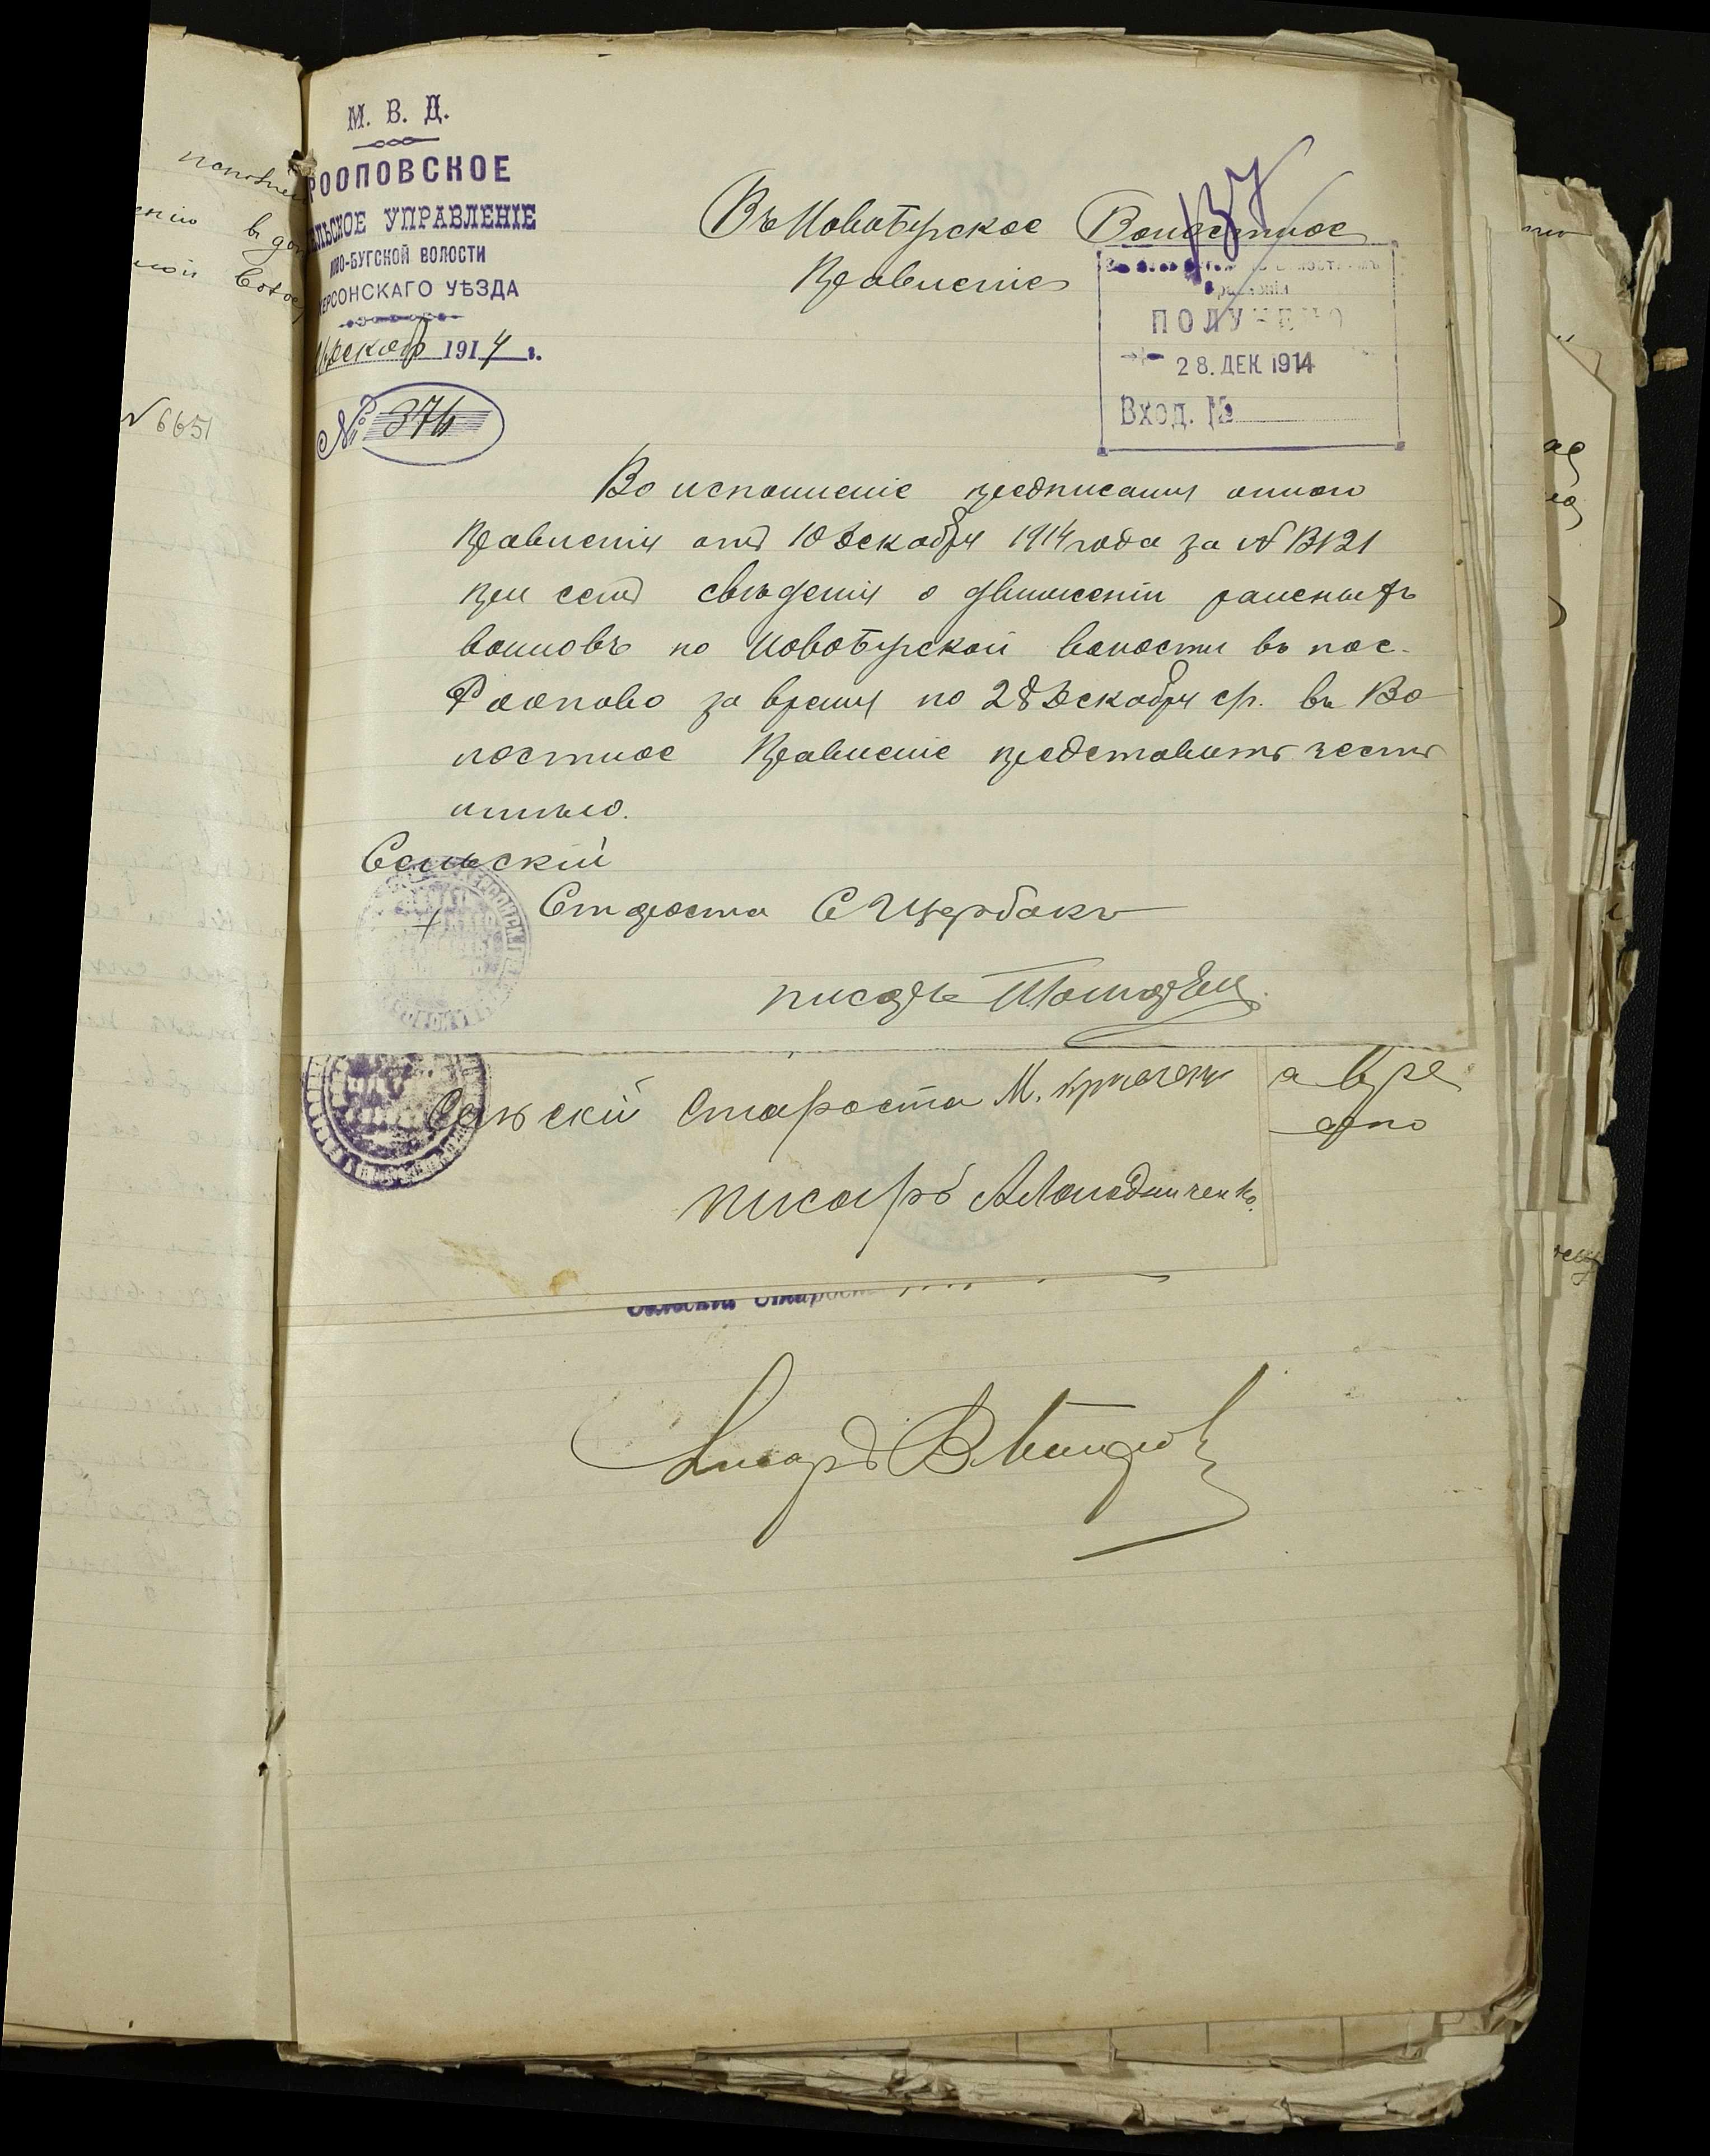 М. В. Д.
РООПОВСКОЕ
ЛЬСКОЕ УПРАВЛЕНІЕ
ВО-БУГСКОЙ ВОЛОСТИ
ЕРСОНСКАГО УѢЗДА
декабр 1914 г.
№ 376
137
Въ Новобугское Волостное
Правленіе
ПОЛУЧЕНО
28. ДЕК 1914
Вход. №
Во исполненіе предписанія оного
Правленія отъ 10 Декабря 1914 года за № 13121
при семъ свѣденія о движеніи раненыхъ
воиновъ по Новобугской волости въ пос.
Роопово за время по 28 Декабря с/г. въ Во
лостное Правленіе представить честь
имѣю.
Сельскій
Староста С Щербакъ
писарь
Сельскій Староста М.
а Вре
писарь
Сельскій Старост
Писарь В
№ 6651